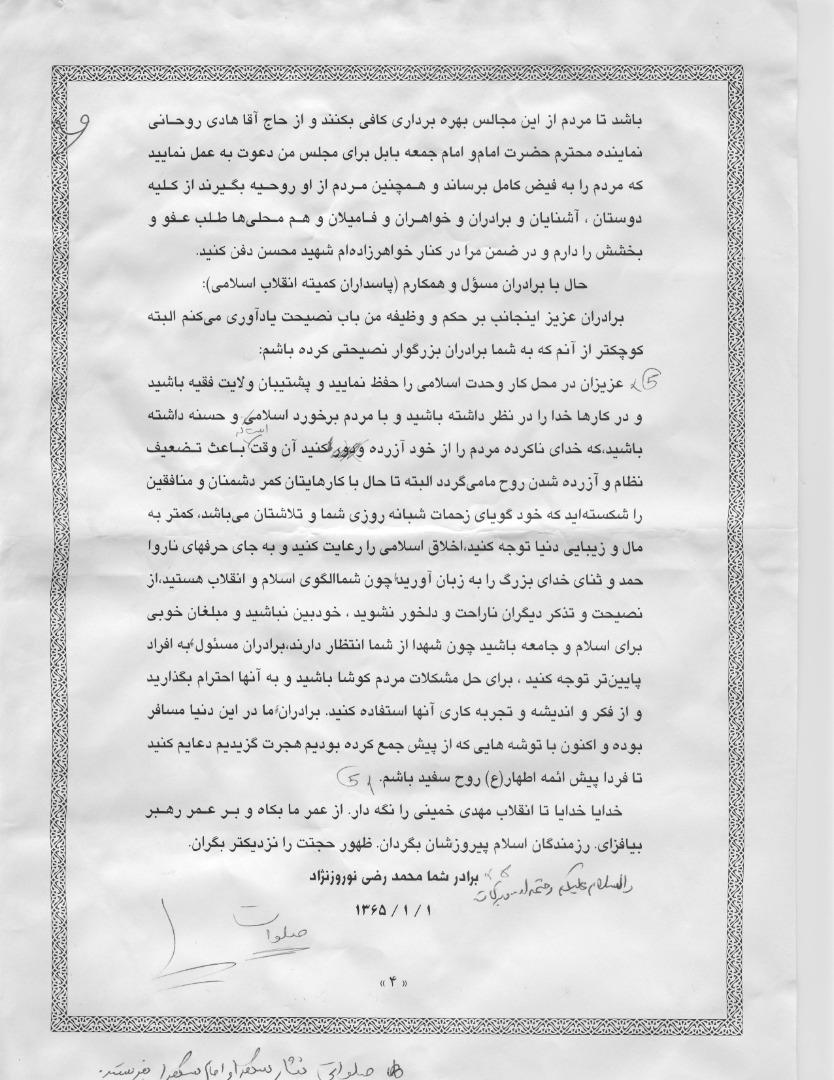 باشد تا مردم از این مجالس بهره برداری کافی بکنند و از حاج آقا هادی روحانی
نماینده محترم حضرت امام‌و امام جمعه بابل برای مجلس من دعوت به عمل نمایید
که مردم را به فیض کامل برساند و همچنین مردم از او روحیه بگیرند از کلیه
دوستان ، آشنایان و برادران و خواهران و فامیلان و هم محلی‌ها طلب عفو و
بخشش را دارم و در ضمن مرا در کنار خواهرزاده‌ام شهید محسن دفن کنید.
حال با برادران مسؤل و همکارم (پاسداران کمیته انقلاب اسلامی):
برادران عزیز اینجانب بر حکم و وظیفه من باب نصیحت یادآوری می‌کنم البته
کوچکتر از آنم که به شما برادران بزرگوار نصیحتی کرده باشم:
5 عزیزان در محل کار وحدت اسلامی را حفظ نمایید و پشتیبان ولایت فقیه باشید
و در کارها خدا را در نظر داشته باشید و با مردم برخورد اسلامی و حسنه داشته
باشید،که خدای ناکرده مردم را از خود آزرده و دور کنید آن وقت باعث تضعیف
نظام و آزرده شدن روح مامی‌گردد البته تا حال با کارهایتان کمر دشمنان و منافقین
را شکسته‌اید که خود گویای زحمات شبانه روزی شما و تلاشتان می‌باشد، کمتر به
مال و زیبایی دنیا توجه کنید،اخلاق اسلامی را رعایت کنید و به جای حرفهای ناروا
حمد و ثنای خدای بزرگ را به زبان آورید چون شماالگوی اسلام و انقلاب هستید،از
نصیحت و تذکر دیگران ناراحت و دلخور نشوید ، خودبین نباشید و مبلغان خوبی
برای اسلام و جامعه باشید چون شهدا از شما انتظار دارند،برادران مسئول به افراد
پایین‌تر توجه کنید ، برای حل مشکلات مردم کوشا باشید و به آنها احترام بگذارید
و از فکر و اندیشه و تجربه کاری آنها استفاده کنید. برادران ما در این دنیا مسافر
بوده و اکنون با توشه هایی که از پیش جمع کرده بودیم هجرت گزیدیم دعایم کنید
تا فردا پیش ائمه اطهار(ع) روح سفید باشم. 5
خدایا خدایا تا انقلاب مهدی خمینی را نگه دار. از عمر ما بکاه و بر عمر رهبر
بیافزای. رزمندگان اسلام پیروزشان بگردان. ظهور حجتت را نزدیکتر بگران.
برادر شما محمد رضی نوروزنژاد
والسلام علیکم و رحمة الله و برکاته
۱۳۶۵ / ۱ / ۱
صلوات
« ۴ »
صلواتی نثار شهدا و امام شهدا بفرستید.